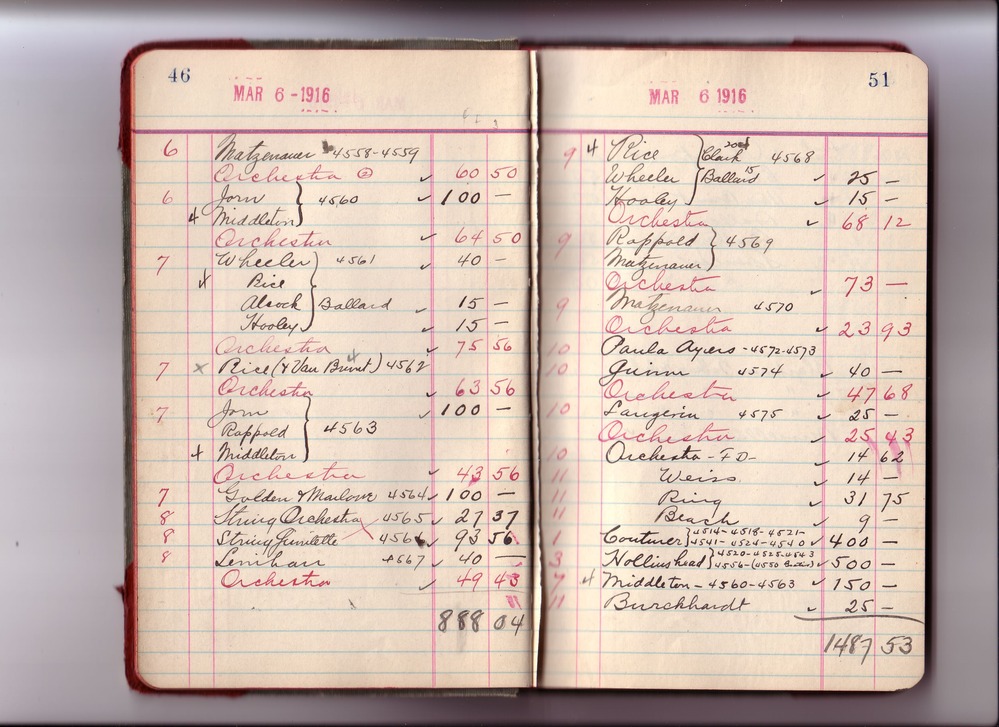 46
MAR 6 - 1916
6 Matzenauer 4558-4559
Orchestra ✓ 60 50
6 Jorn } 4560 ✓ 100 —
Middleton
Orchestra ✓ 64 50
7 Wheeler } 4561 ✓ 40 —
Rice
Alcock Ballard 15 —
Hooley ✓ 15 —
Orchestra ✓ 75 56
7 x Rice (& Van Brunt) 4562
Orchestra 63 56
7 Jorn } ✓ 100 —
Rappold 4563
Middleton
Orchestra ✓ 43 56
7 Golden & Marlowe 4564 ✓ 100 —
8 String Orchestra 4565 ✓ 27 37
8 String Quintette 4566 ✓ 93 56
8 Lenihan 4567 ✓ 40 —
Orchestra ✓ 49 43
888 04
51
MAR 6 1916
9 Rice } Clark 20 4568
Wheeler Ballard 15 ✓ 25 —
Hooley ✓ 15 —
Orchestra ✓ 68 12
9 Rappold } 4569
Matzenauer
Orchestra ✓ 73 —
9 Matzenauer 4570
Orchestra ✓ 23 93
10 Paula Ayers - 4572-4573
10 Gunn 4574 ✓ 40 —
Orchestra ✓ 47 68
10 Langevin 4575 ✓ 25 —
Orchestra ✓ 25 43
10 Orchestra - F D - ✓ 14 62
11 Weiss ✓ 14 —
11 Ring ✓ 31 75
11 Beach ✓ 9 —
1 Couturier } 4514-4518-4521-
4541-4524-4540 ✓ 400 —
3 Hollinshead } 4520-4525-4543
4556-(4550 ✓ 500 —
7 Middleton - 4560-4563 ✓ 150 —
11 Burckhardt ✓ 25 —
1487 53